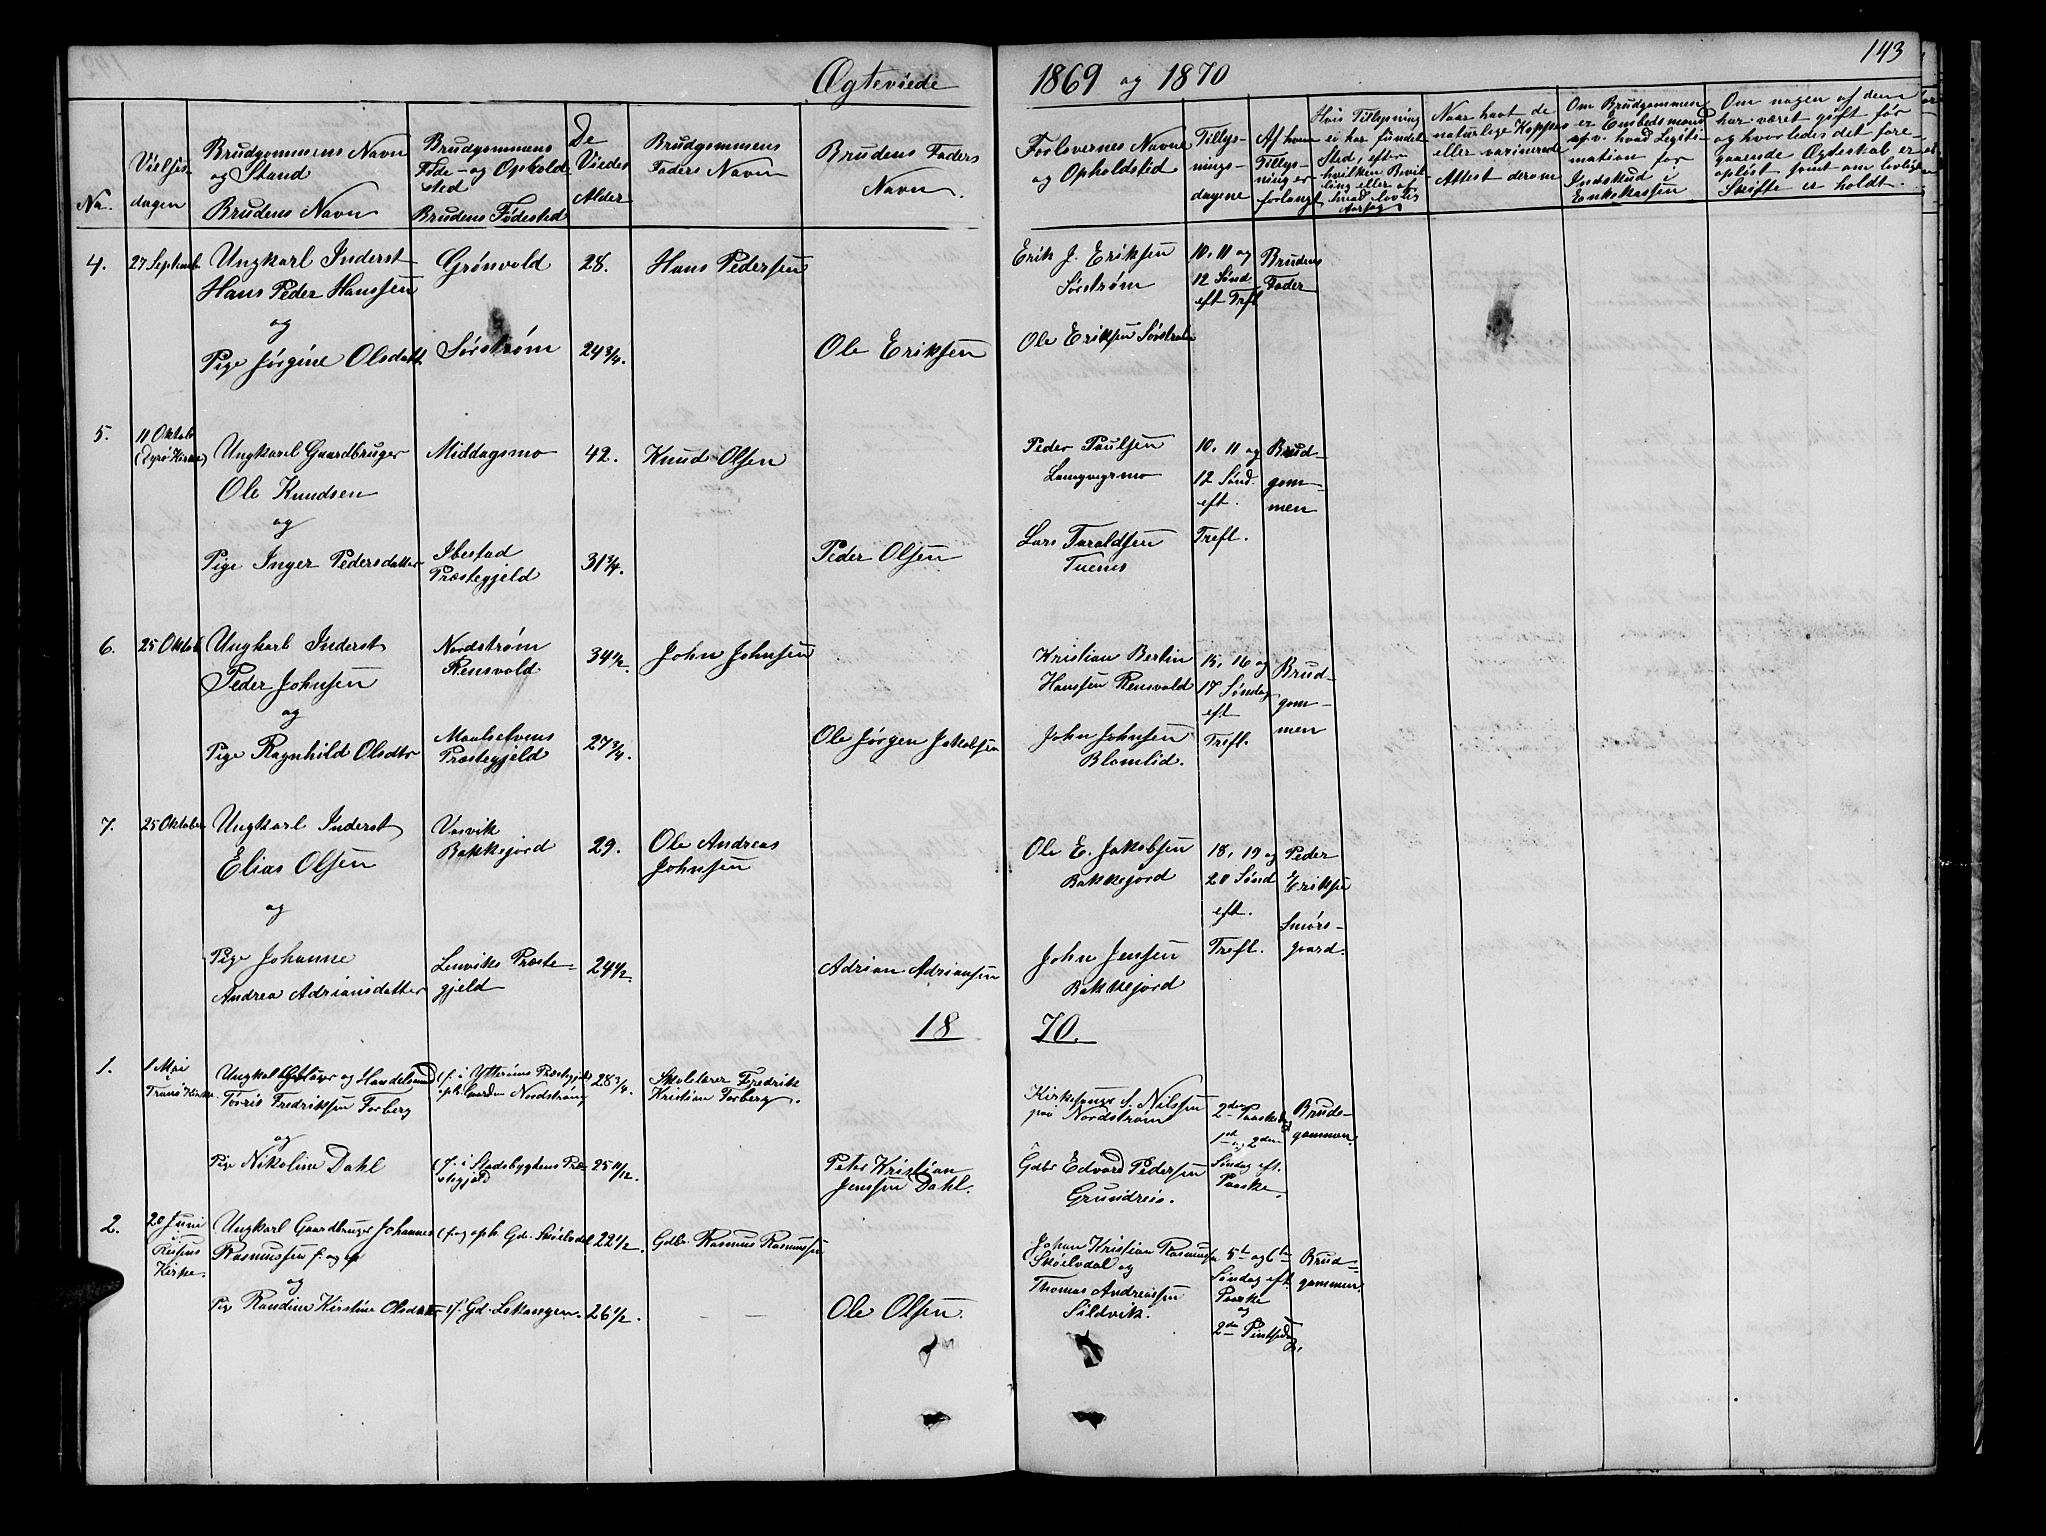 Ægteviede
1869 og 1870
143
No.
Vielses-
dagen
Brudgommens Navn
og Stand
Brudens Navn
Brudgommens
Føde- og Opholds
sted
Brudens Fødested
De
Viedes
Alder
Brudgommens
Faders Navn
Brudens Faders
Navn
Forlovernes Navne
og Opholdsted
Tillys-
nings-
dagene
Af hvem
Tillys-
ning er
forlangt
Hvis Tillysning
ei har fundet
Sted, efter
hvilken Bevil-
ling eller af
hvad lovlig
Aarsag
Naar havt de
naturlige Kopper
eller vaxinerede
Attest derom
Om Brudgommen
er Embedsmand
hvad Legiti-
mation for
Indskud i
Enkekassen
Om nogen af dem
har været gift før
og hvorledes det fore-
gaaende Ægteskab er
opløst samt om lovligt
Skifte er holdt.
4.
27 Septemb.
Ungkarl Inderst
Hans Peder Hanssen
og
Pige Jørgine Olsdatt.
Grønvold
Sørstrøm
28.
24 3/4.
Hans Pedersen
Ole Eriksen
Erik J. Eriksen
Sørstrøm
Ole Eriksen Sørstrøm
10, 11 og
12 Sønd.
eft Tref.
Brudens
Fader
5.
11 Oktob
(Dyrø Kirke)
Ungkarl Gaardbruger
Ole Knudsen
og
Pige Inger Pedersdatter
Middagsmo
Ibestad
Præstegjeld
42.
31 3/4.
Knud Olsen
Peder Olsen
Peder Paulsen
Lars Taraldsen
10, 11 og
12 Sønd.
eft.
Treft.
Brud-
gom-
men
6.
25 Oktob.
Ungkarl Inderst
Peder Johnsen
og
Pige Ragnhild Olsdtr
Nordstrøm
Rensvold
Maalselvens
Præstegjeld
34 1/2.
27 3/4.
John Johnsen
Ole Jørgen Jakobsen
Kristian Bertin
Hanssen Rensvold
John Johnsen
Blomlid.
15, 16 og
17 Søndag
eft
Treft.
Brud-
gom-
men
7.
25 Oktober
Ungkarl Inderst
Elias Olsen
og
Pige Johanne
Andrea Adriansdatter
Vasvik
Bakkejord
Lenviks Præste-
gjeld
29.
24 1/2.
Ole Andreas
Johnsen
Adrian Adriansen
Ole E. Jakobsen
Bakkejord
John Jensen
Bakkejord
18, 19 og
20 Sønd
eft.
Treft.
Peder
Eriksen
Smørs-
gaard.
18 70.
1.
1 Mai
i
Tranø Kirke
Ungkarl og Handelsmand
Tørris Fredriksen Forberg
og
Pige Nikoline Dahl
f. i Ytterøens Præstegjeld
oph. Gaarden Nordstrøm
f. i Stadsbygdens Præ-
stegjeld
28 3/4.
25 11/12.
Skolelærer Fredrik
Kristian Forberg.
Peter Kristian
Jenssen Dahl.
Kirkesanger S. Nilssen
paa Nordstrøm
Gdbr Edvard Pedersen
Grundreis.
2den Paaskedag
1ste og 2den
Søndag eft.
Paaske.
Brud-
gommen.
2.
20 Juni
i
Kirke.
Ungkarl Gaardbruger Johannes
Rasmussen f. og op
og
Pige Randine Kirstine Olsdatter
f. og oph. Gd. Skøelvdal
f. Gd. Lekangen.
22 1/2.
26 1/2.
Gdbr. Rasmus Rasmussen
— —
Ole Olsen.
Johan Kristian Rasmussen
Skøelvdal og
Thomas Andreassen
Sildvik.
5te og 6te
Søndag eft.
Paaske
og
2den Pintsedag.
Brud-
gommen.